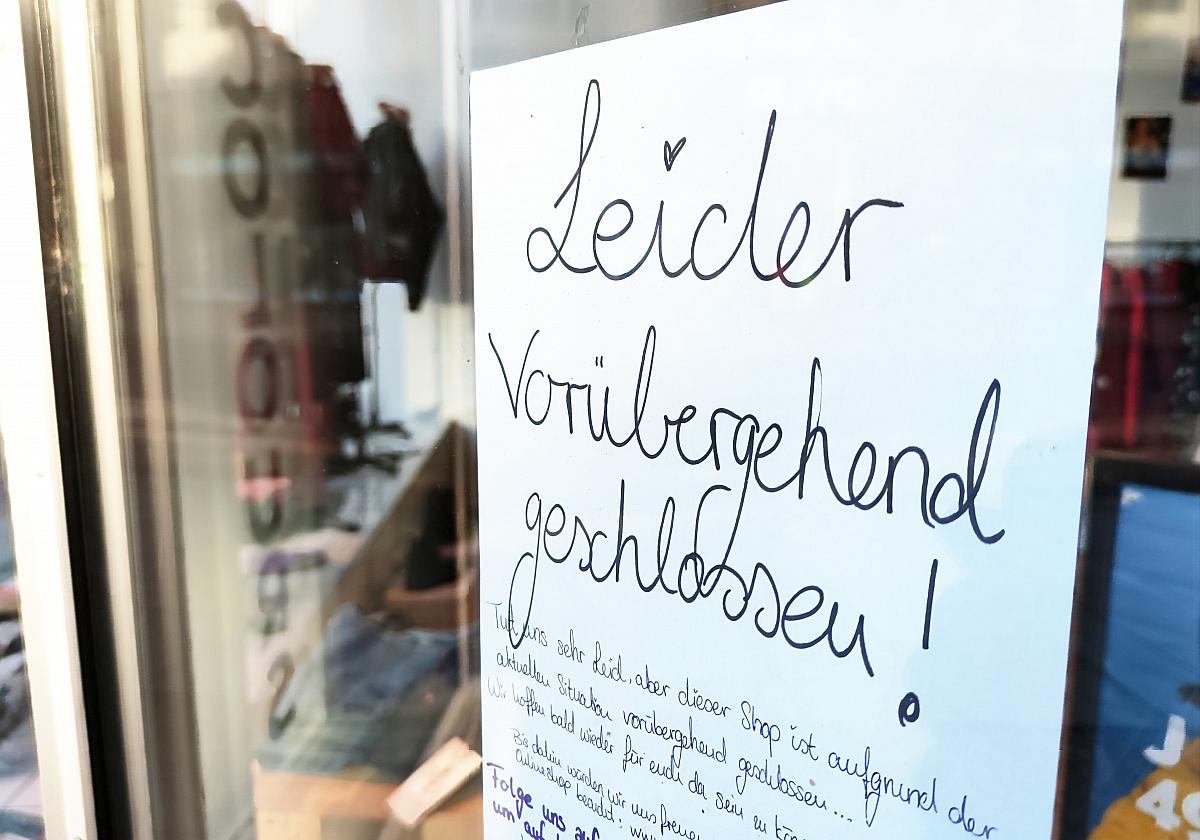 Leider
Vorübergehend
geschlossen!
Tut uns sehr Leid, aber dieser Shop ist aufgrund der
aktuellen Situation vorübergehend geschlossen...
Wir hoffen bald wieder für euch da sein zu
Bis dahin würden wir uns freuen
Onlineshop besucht: www
Folge uns auf
um auf
J